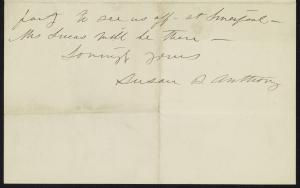 party to see us off - at Liverpool -
Mrs Lucas will be there -
Lovingly yours
Susan B Anthony